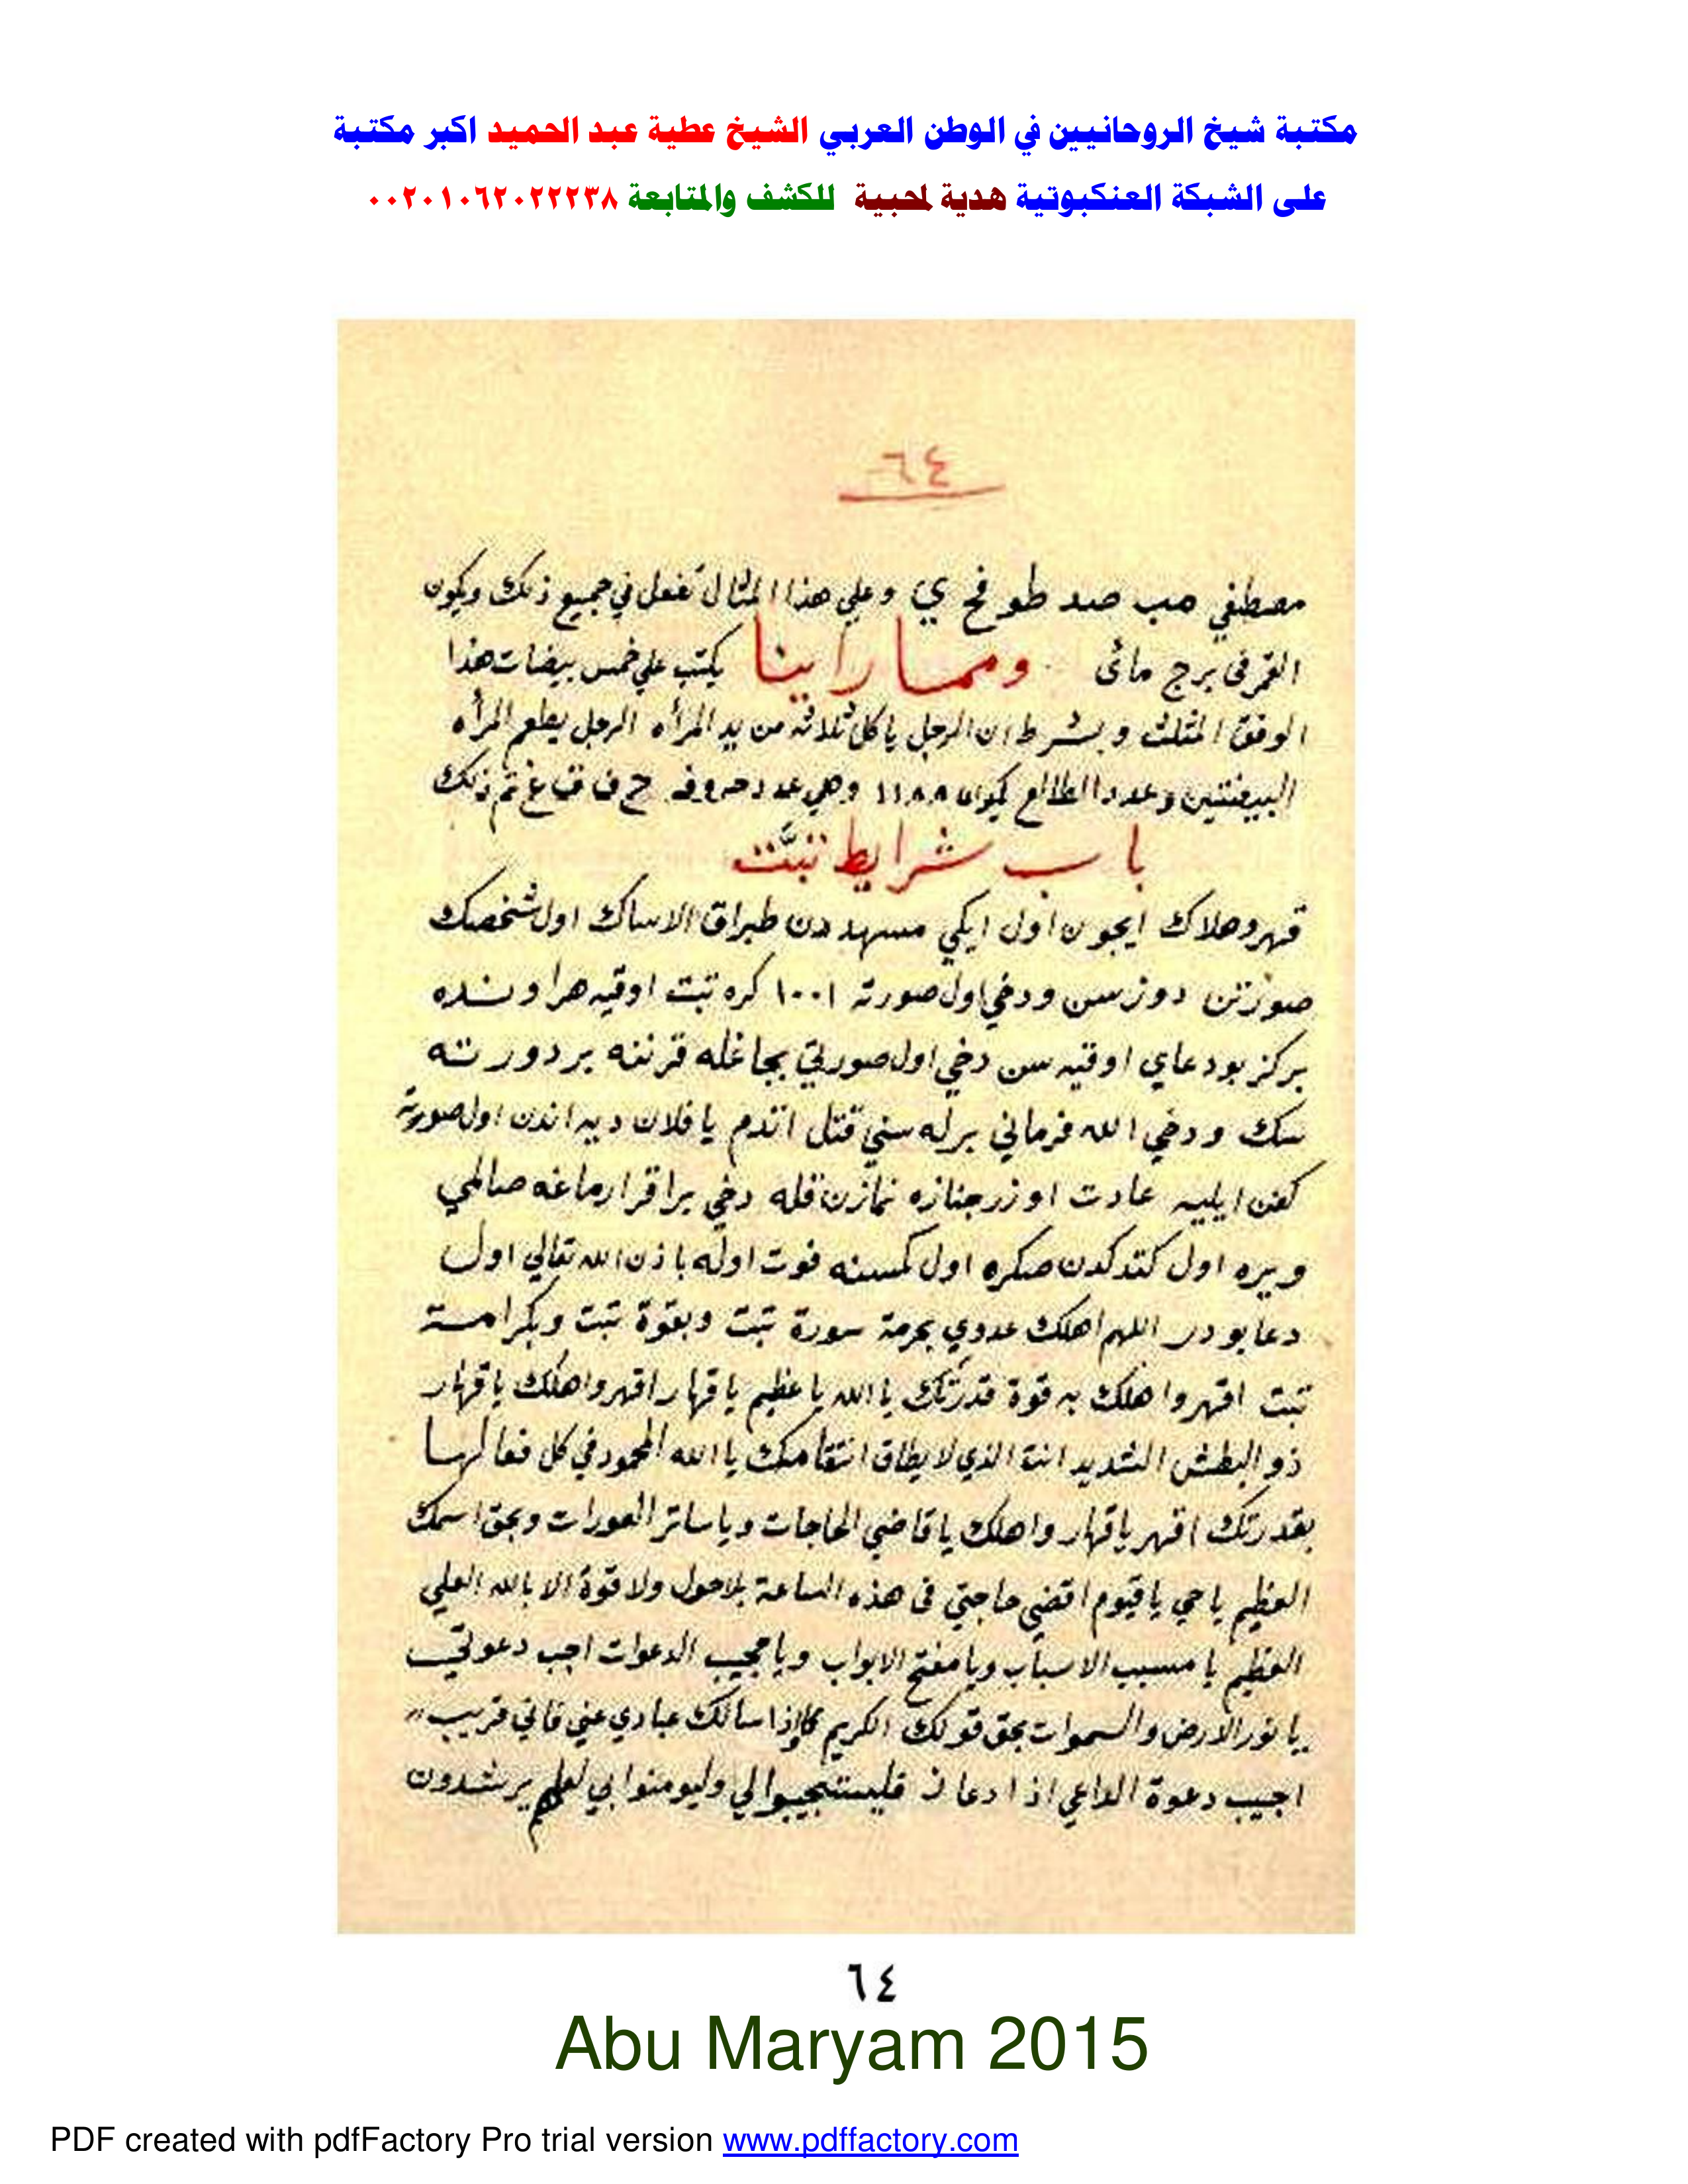 مكتبة شيخ الروحانيين في الوطن العربي الشيخ عطية عبد الحميد اكبر مكتبة
على الشبكة العنكبوتية هدية لمحبية للكشف والمتابعة ٠٠٢٠١٠٦٢٠٢٢٢٣٨
٦٤
مصطفي مب صد طو فح ي وعلي هذا المثال تفعل في جميع ذلك ويكون
القمر في برج مائى ومما راينا يكتب علي خمس بيضات هذا
الوفق المثلث وبشرط ان الرجل ياكل ثلاثه من يد المرأه الرجل يطعم المرأه
البيضتين وعدد الطالع ١١٨٨ وهي عدد حروف ح ف ق غ تم ذلك
باب شرايط تبت
قهر وهلاك ايجون اول ايكي مسهد دن طبراق الاساك اول شخصك
صورتن دوزسن ودخي اول صورته ١٠٠١ كره تبت اوقيه هر اونده
بركز بو دعاي اوقيه سن دخي اول صورتي بجاغله قرننه بر دورته
سك ودخي الله فرماني برله سني قتل اتدم يا فلان ديه اندن اول صورته
كفن ايليه عادت اوزر جنازه نمازن قله دخي براقر ارماغه صالمي
ويره اول كتدكدن صكره اول كمسنه فوت اوله باذن الله تعالي اول
دعا بودر اللهم اهلك عدوي بحرمة سورة تبت وبقوة تبت وبكرامة
تبت اقهر واهلك به قوة قدرتك يا الله يا عظيم يا قهار اقهر واهلك يا قهار
ذو البطش الشديد انتة الذي لا يطاق انتقامك يا الله المحمود في كل فعالها
بقدرتك اقهر ياقهار واهلك يا قاضي الحاجات ويا ساتر العورات وبحق اسمك
العظيم يا حي يا قيوم اقضي حاجتي فى هذه الساعة بلاحول ولا قوة الا بالله العلي
العظيم يا مسبب الاسباب ويا مفتح الابواب ويا مجيب الدعوات اجب دعوتي
يا نور الارض والسموات بحق قولك الكريم وإذا سالك عبادي عني فاني قريب
اجيب دعوة الداعي اذا دعان فليستجيبوا لي وليومنوا بي لعلهم يرشدون
٦٤
Abu Maryam 2015
PDF created with pdfFactory Pro trial version www.pdffactory.com